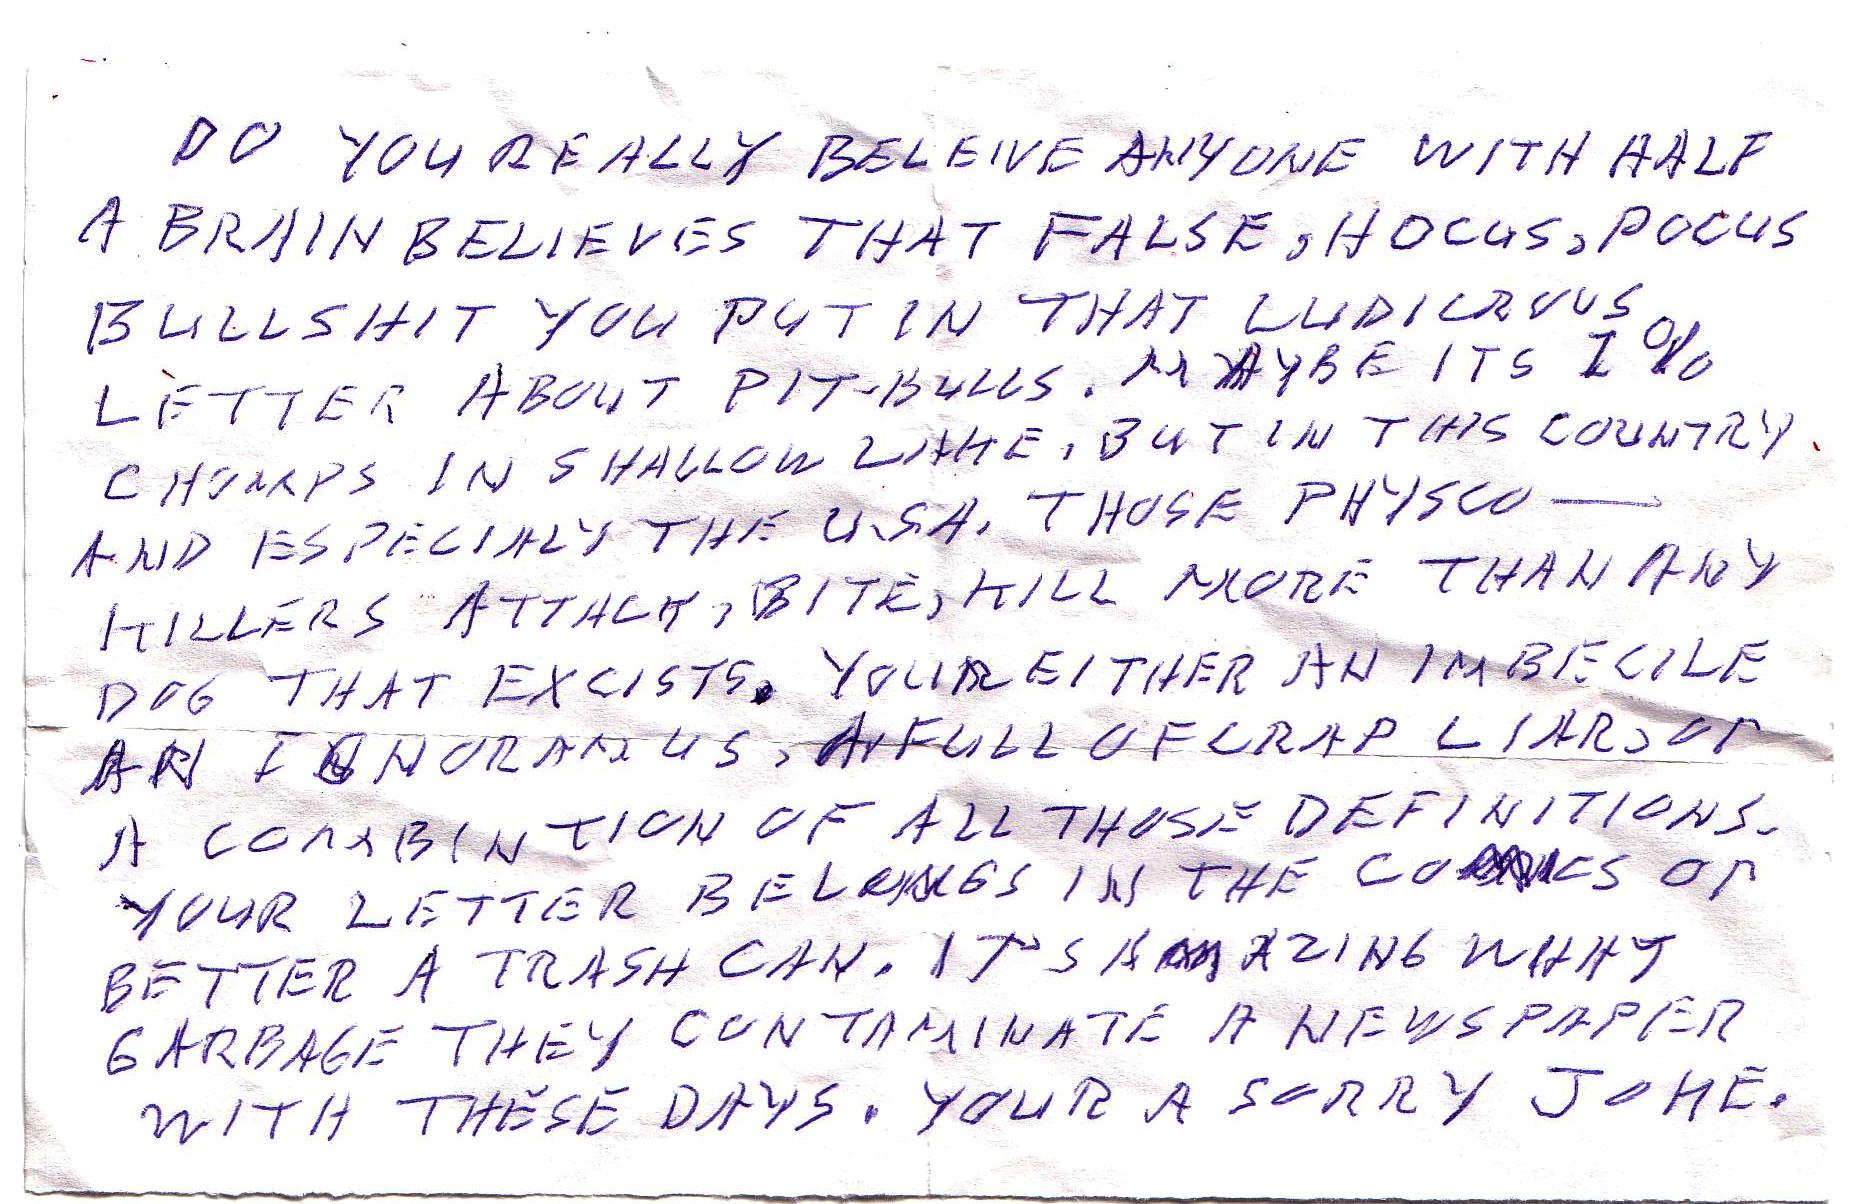 DO YOU REALLY BELEIVE ANYONE WITH HALF
A BRAIN BELIEVES THAT FALSE, HOCUS, POCUS
BULLSHIT YOU PUT IN THAT LUDICROUS
LETTER ABOUT PIT-BULLS. MAYBE ITS 1%
CHOMPS IN SHALLOW LAKE, BUT IN THIS COUNTRY
AND ESPECIALY THE U.S.A. THOSE PHYSCO—
KILLERS ATTACK, BITE, KILL MORE THAN ANY
DOG THAT EXCISTS. YOUR EITHER AN IMBECILE
AN IGNORAMUS, A FULL OF CRAP LIAR, OR
A COMBINTION OF ALL THOSE DEFINITIONS.
YOUR LETTER BELONGS IN THE COMICS OR
BETTER A TRASH CAN. IT'S AMAZING WHAT
GARBAGE THEY CONTAMINATE A NEWSPAPER
WITH THESE DAYS. YOUR A SORRY JOKE.